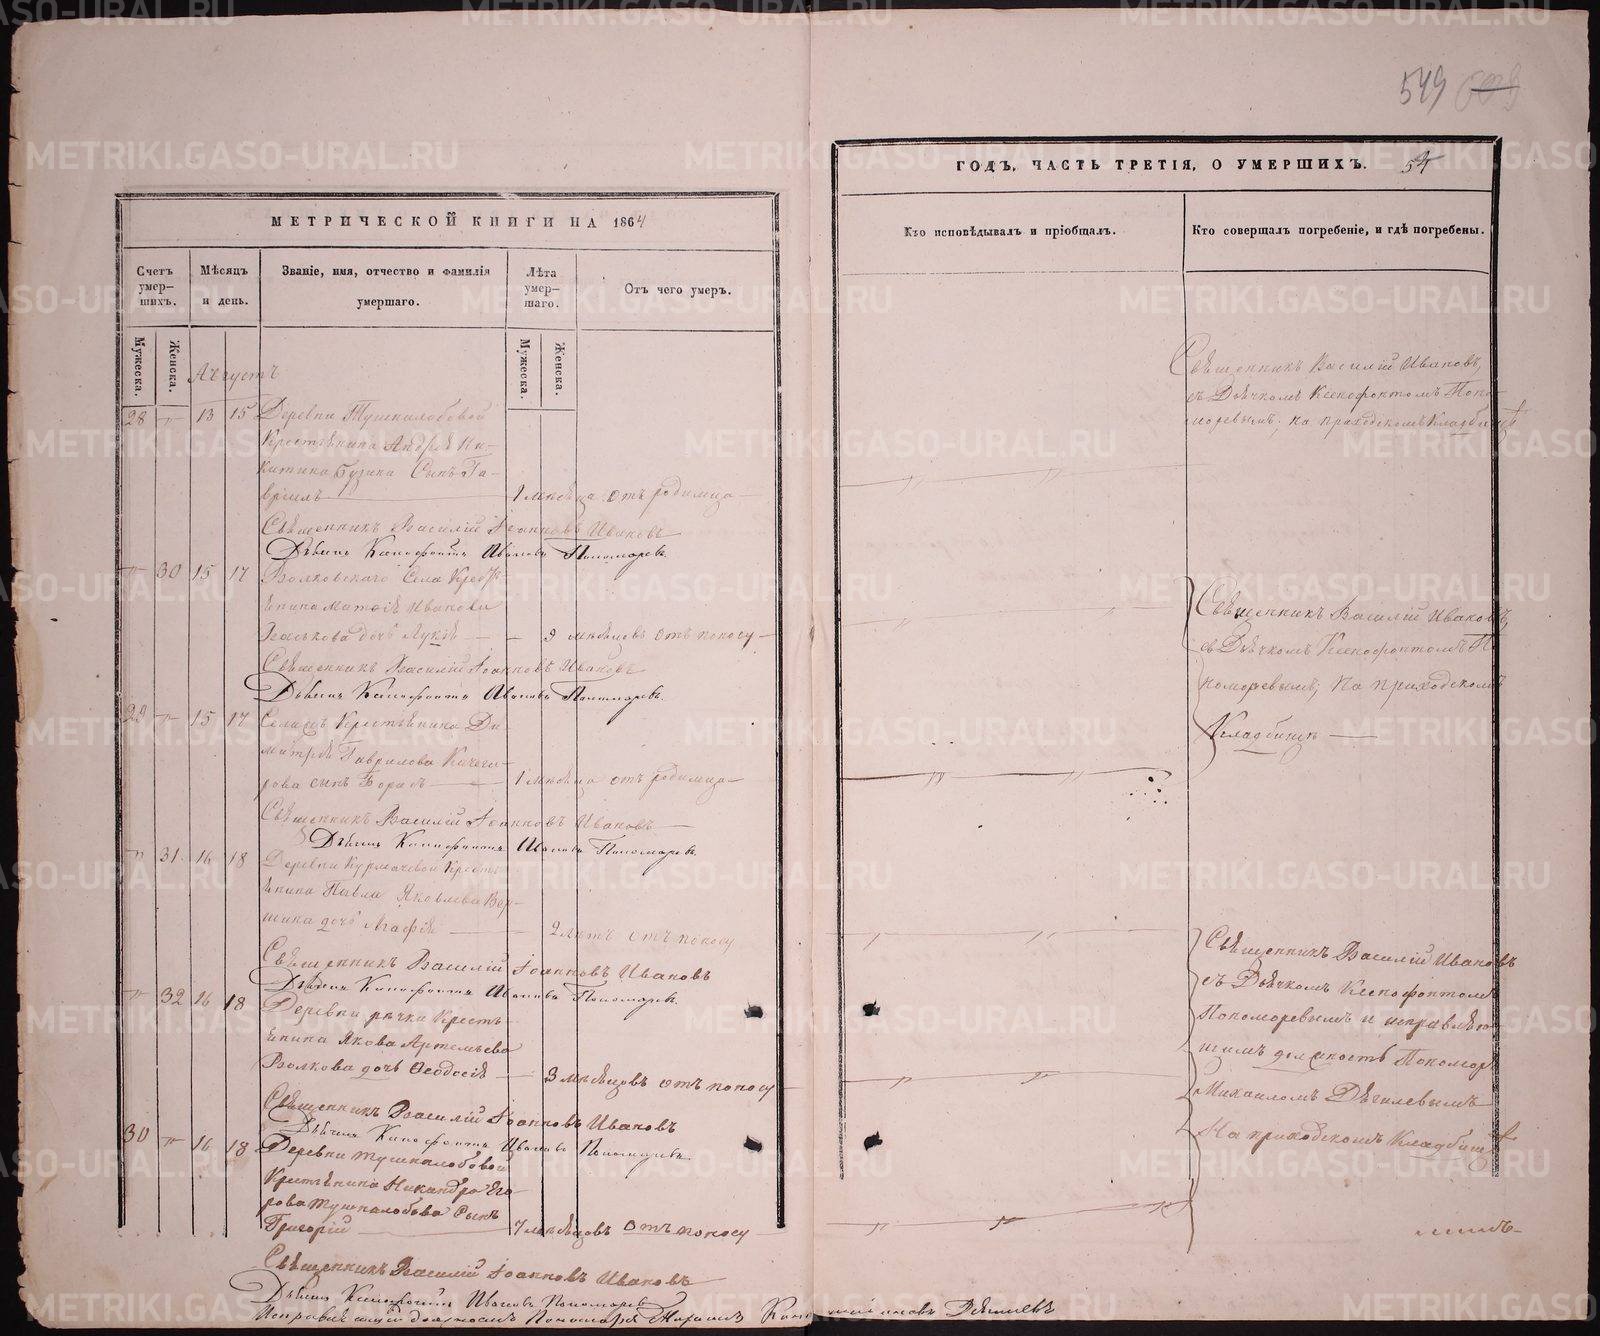 549
МЕТРИЧЕСКОЙ КНИГИ НА 1864
Счетъ умершихъ.
Мѣсяцъ и день.
Званіе, имя, отчество и фамилія умершаго.
Лѣта умершаго.
Отъ чего умеръ.
Мужеска.
Женска.
Мужеска.
Женска.
Августъ
28 " 13 15 Деревни Тушкалобовой
Крестьянина Андрея Ни-
китина Бузина Сынъ Га-
вріилъ 1 мѣсяца отъ родимца
Священникъ Василій Іоанновъ Ивановъ
Дьячекъ Ксенофонтъ Ивановъ Пономаревъ
" 30 15 17 Волковскаго Села Крестья-
нина Иванова
дочь 9 мѣсяцовъ отъ поносу
Священникъ Василій Іоанновъ Ивановъ
Дьячекъ Ксенофонтъ Ивановъ Пономаревъ.
29 " 15 17 Крестьянина Ди-
митрія Гаврилова Качега-
рова сынъ 1 мѣсяца отъ родимца
Священникъ Василій Іоанновъ Ивановъ
Дьячекъ Ксенофонтъ Ивановъ Пономаревъ.
" 31 16 18 Деревни Крестья-
нина Павла Яковлева Вер-
шина дочь Агафія 2 лѣтъ отъ поносу
Священникъ Василій Іоанновъ Ивановъ
Дьячекъ Ксенофонтъ Ивановъ Пономаревъ.
" 32 16 18 Деревни Крестья-
нина Якова Артемьева
Волкова дочь Ѳеодосія 3 мѣсяцовъ отъ поносу
Священникъ Василій Іоанновъ Ивановъ
Дьячекъ Ксенофонтъ Ивановъ Пономаревъ
30 " 16 18 Деревни Тушкалобовой
Крестьянина Никандра Его-
рова Тушкалобова Сынъ
Григорій 7 мѣсяцовъ отъ поносу
Священникъ Василій Іоанновъ Ивановъ
Дьячекъ Ксенофонтъ Ивановъ Пономаревъ
Пономаря
ГОДЪ, ЧАСТЬ ТРЕТІЯ, О УМЕРШИХЪ. 54
Кто исповѣдывалъ и пріобщалъ.
Кто совершалъ погребеніе, и гдѣ погребены.
Священникъ Василій Ивановъ,
съ Дьячкомъ Ксенофонтомъ Поно-
моревымъ; на приходскомъ Кладбищѣ
Священникъ Василій Ивановъ,
съ Дьячкомъ Ксенофонтомъ По-
номоревымъ; на приходскомъ
Кладбищѣ
Священникъ Василій Ивановъ
съ Дьячкомъ Ксенофонтомъ
Пономоревымъ и исправляю-
щимъ должность Пономоря
Михаиломъ Дягилевымъ
На приходскомъ Кладбищѣ
METRIKI.GASO-URAL.RU